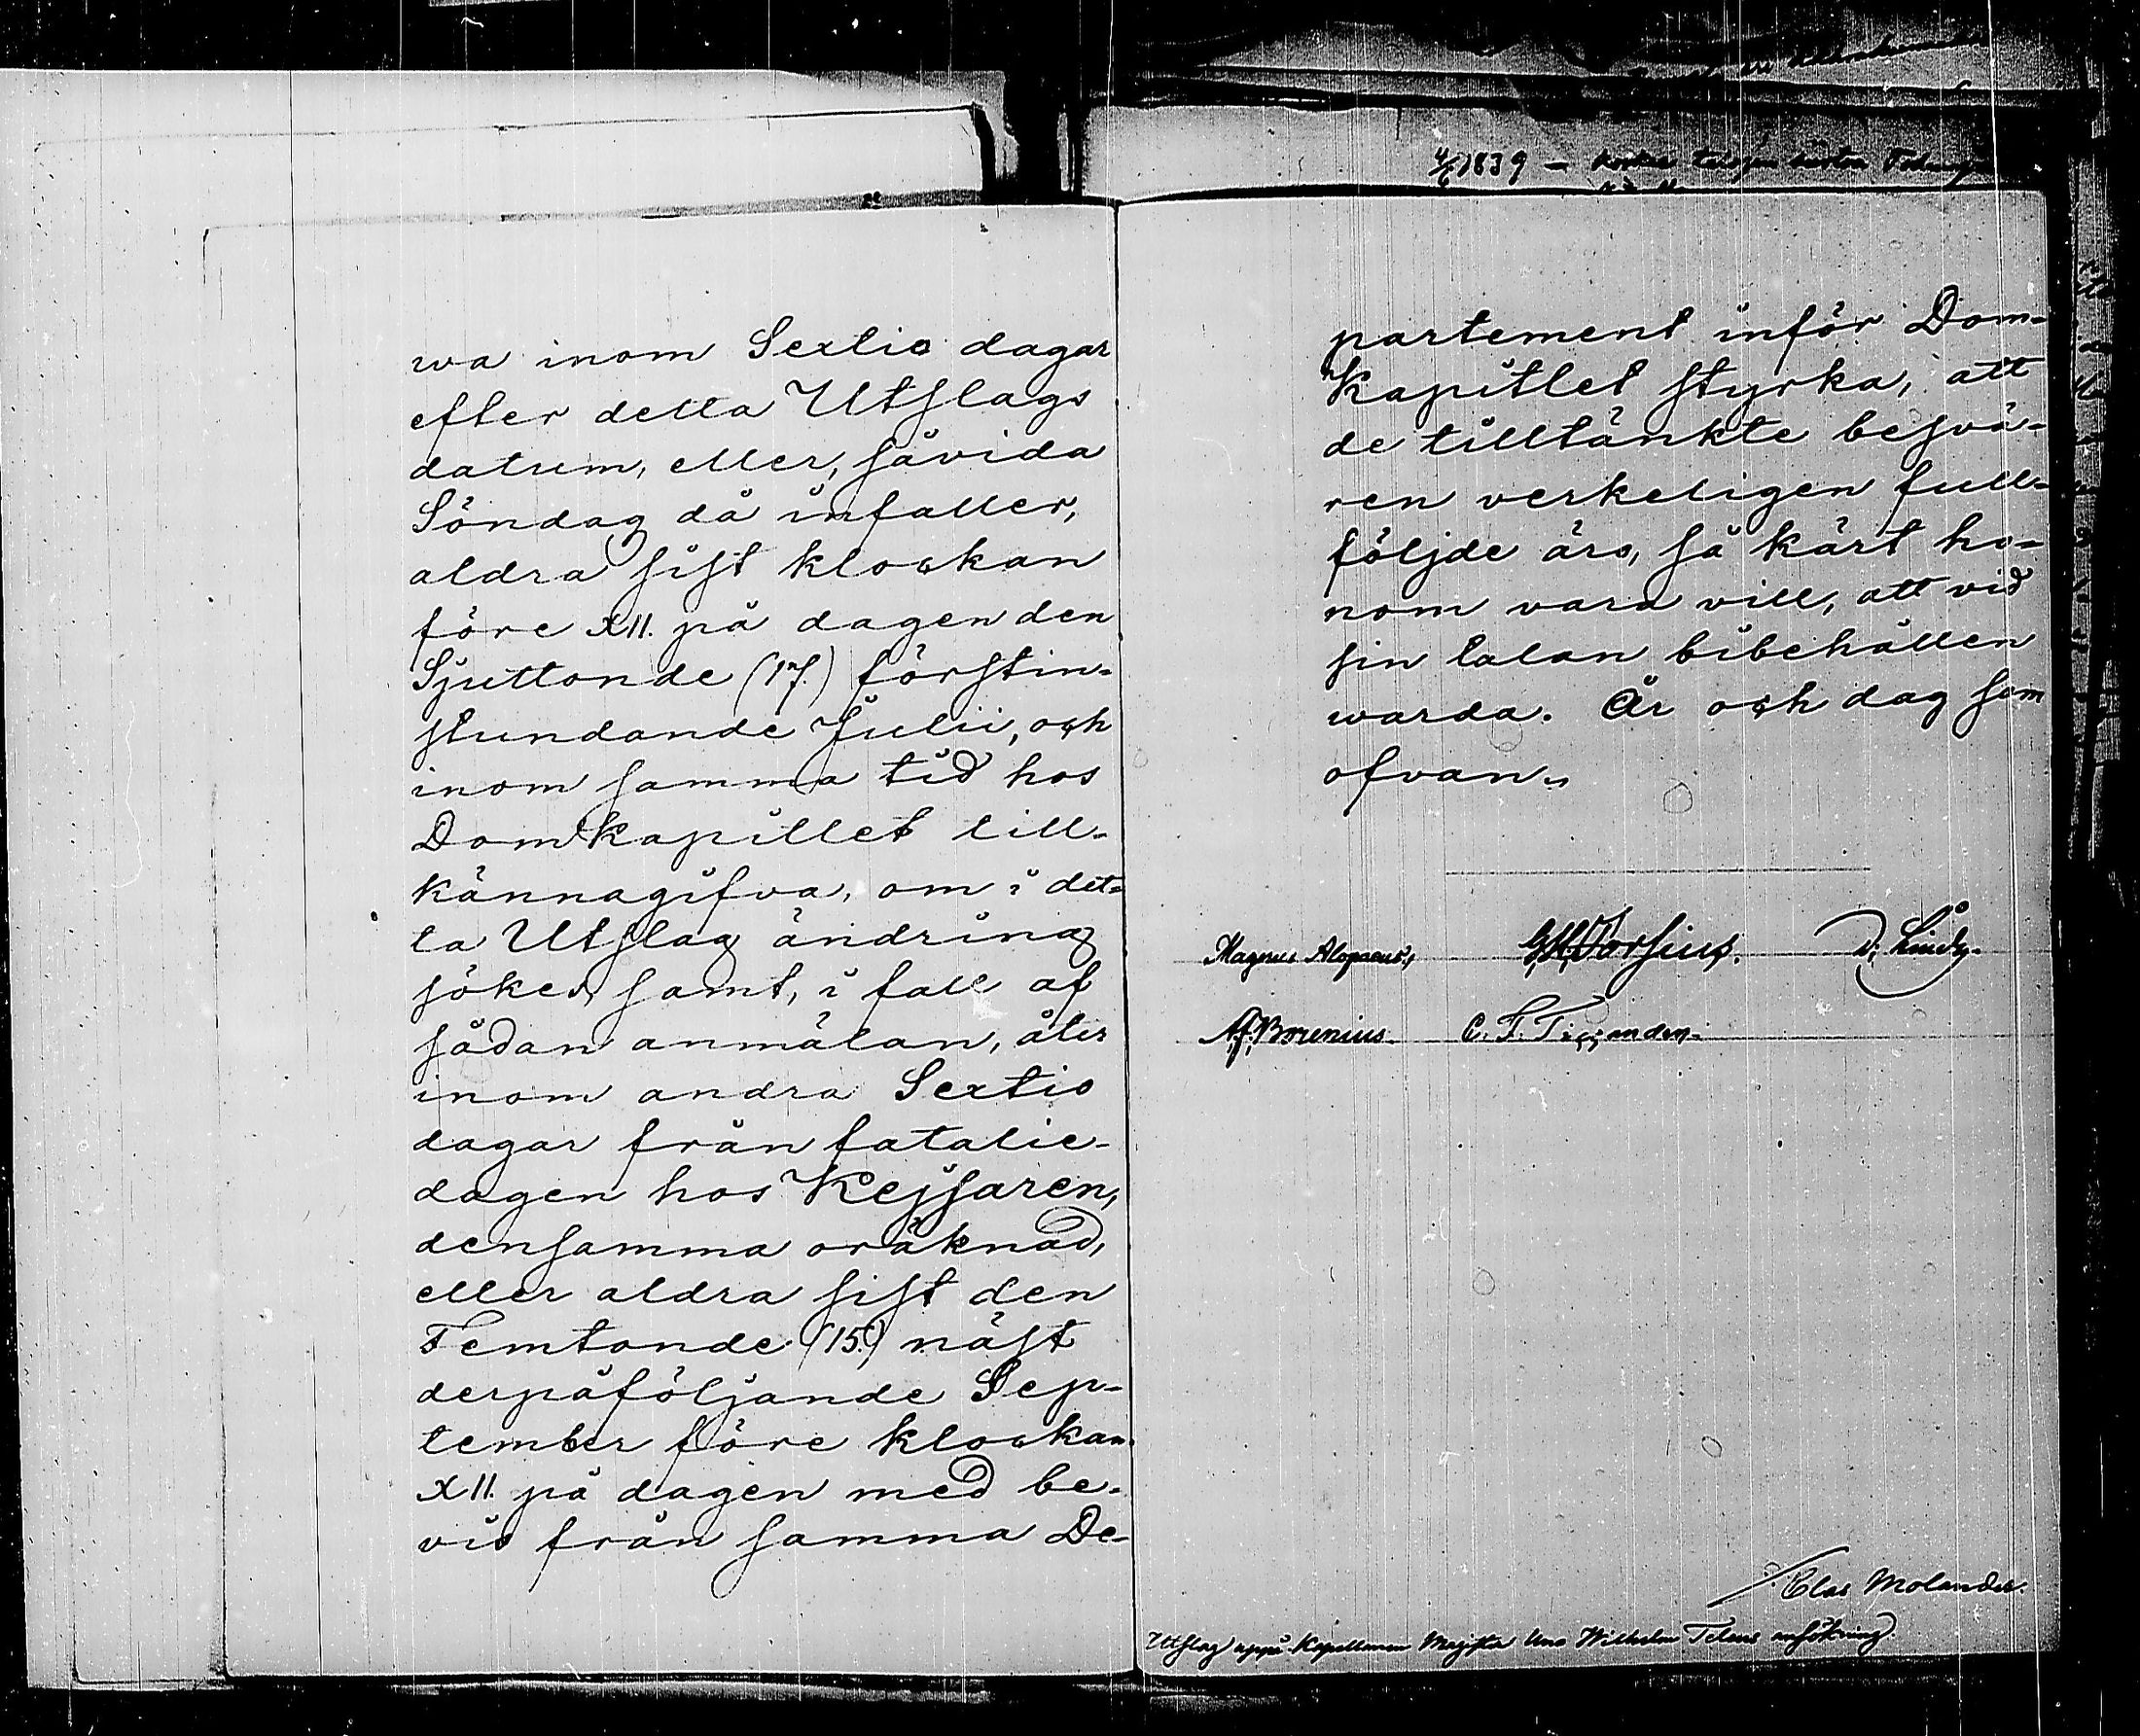 wa inom Sextio dagar
efter detta Utslags
datum, eller, såvida
Söndag då infaller,
aldra sist klockan
före XII. på dagen den
Sjuttonde (17.) förstin-
stundande Julii, och
inom samma tid hos
DomKapitlet till-
kännagifva, om i det-
ta Utslag ändring
sökes, samt, i fall af
sådan anmälan, åter
inom andra Sextio
dagar från fatalie-
dagen hos Kejsaren,
densamma oräknad,
eller aldra sist den
Femtonde (15.) näst
derpåföljande Sep-
tember före klockan
XII. på dagen med be-
vis från samma De-
4/6 1839 -
partement inför Dom-
Kapitlet styrka, att
de tilltänkte besvä-
ren verkeligen full-
följde äro, så kärt ho-
nom vara vill, att vid
sin talan bibehållen
warda. År och dag som
ofvan.
Magnus Alopaeus. G.H. Forsius.
Af. Borenius. C. F.
Clas Molander.
Utslag uppå Kapellanen Magister Uno Wilhelm Telens ansökning